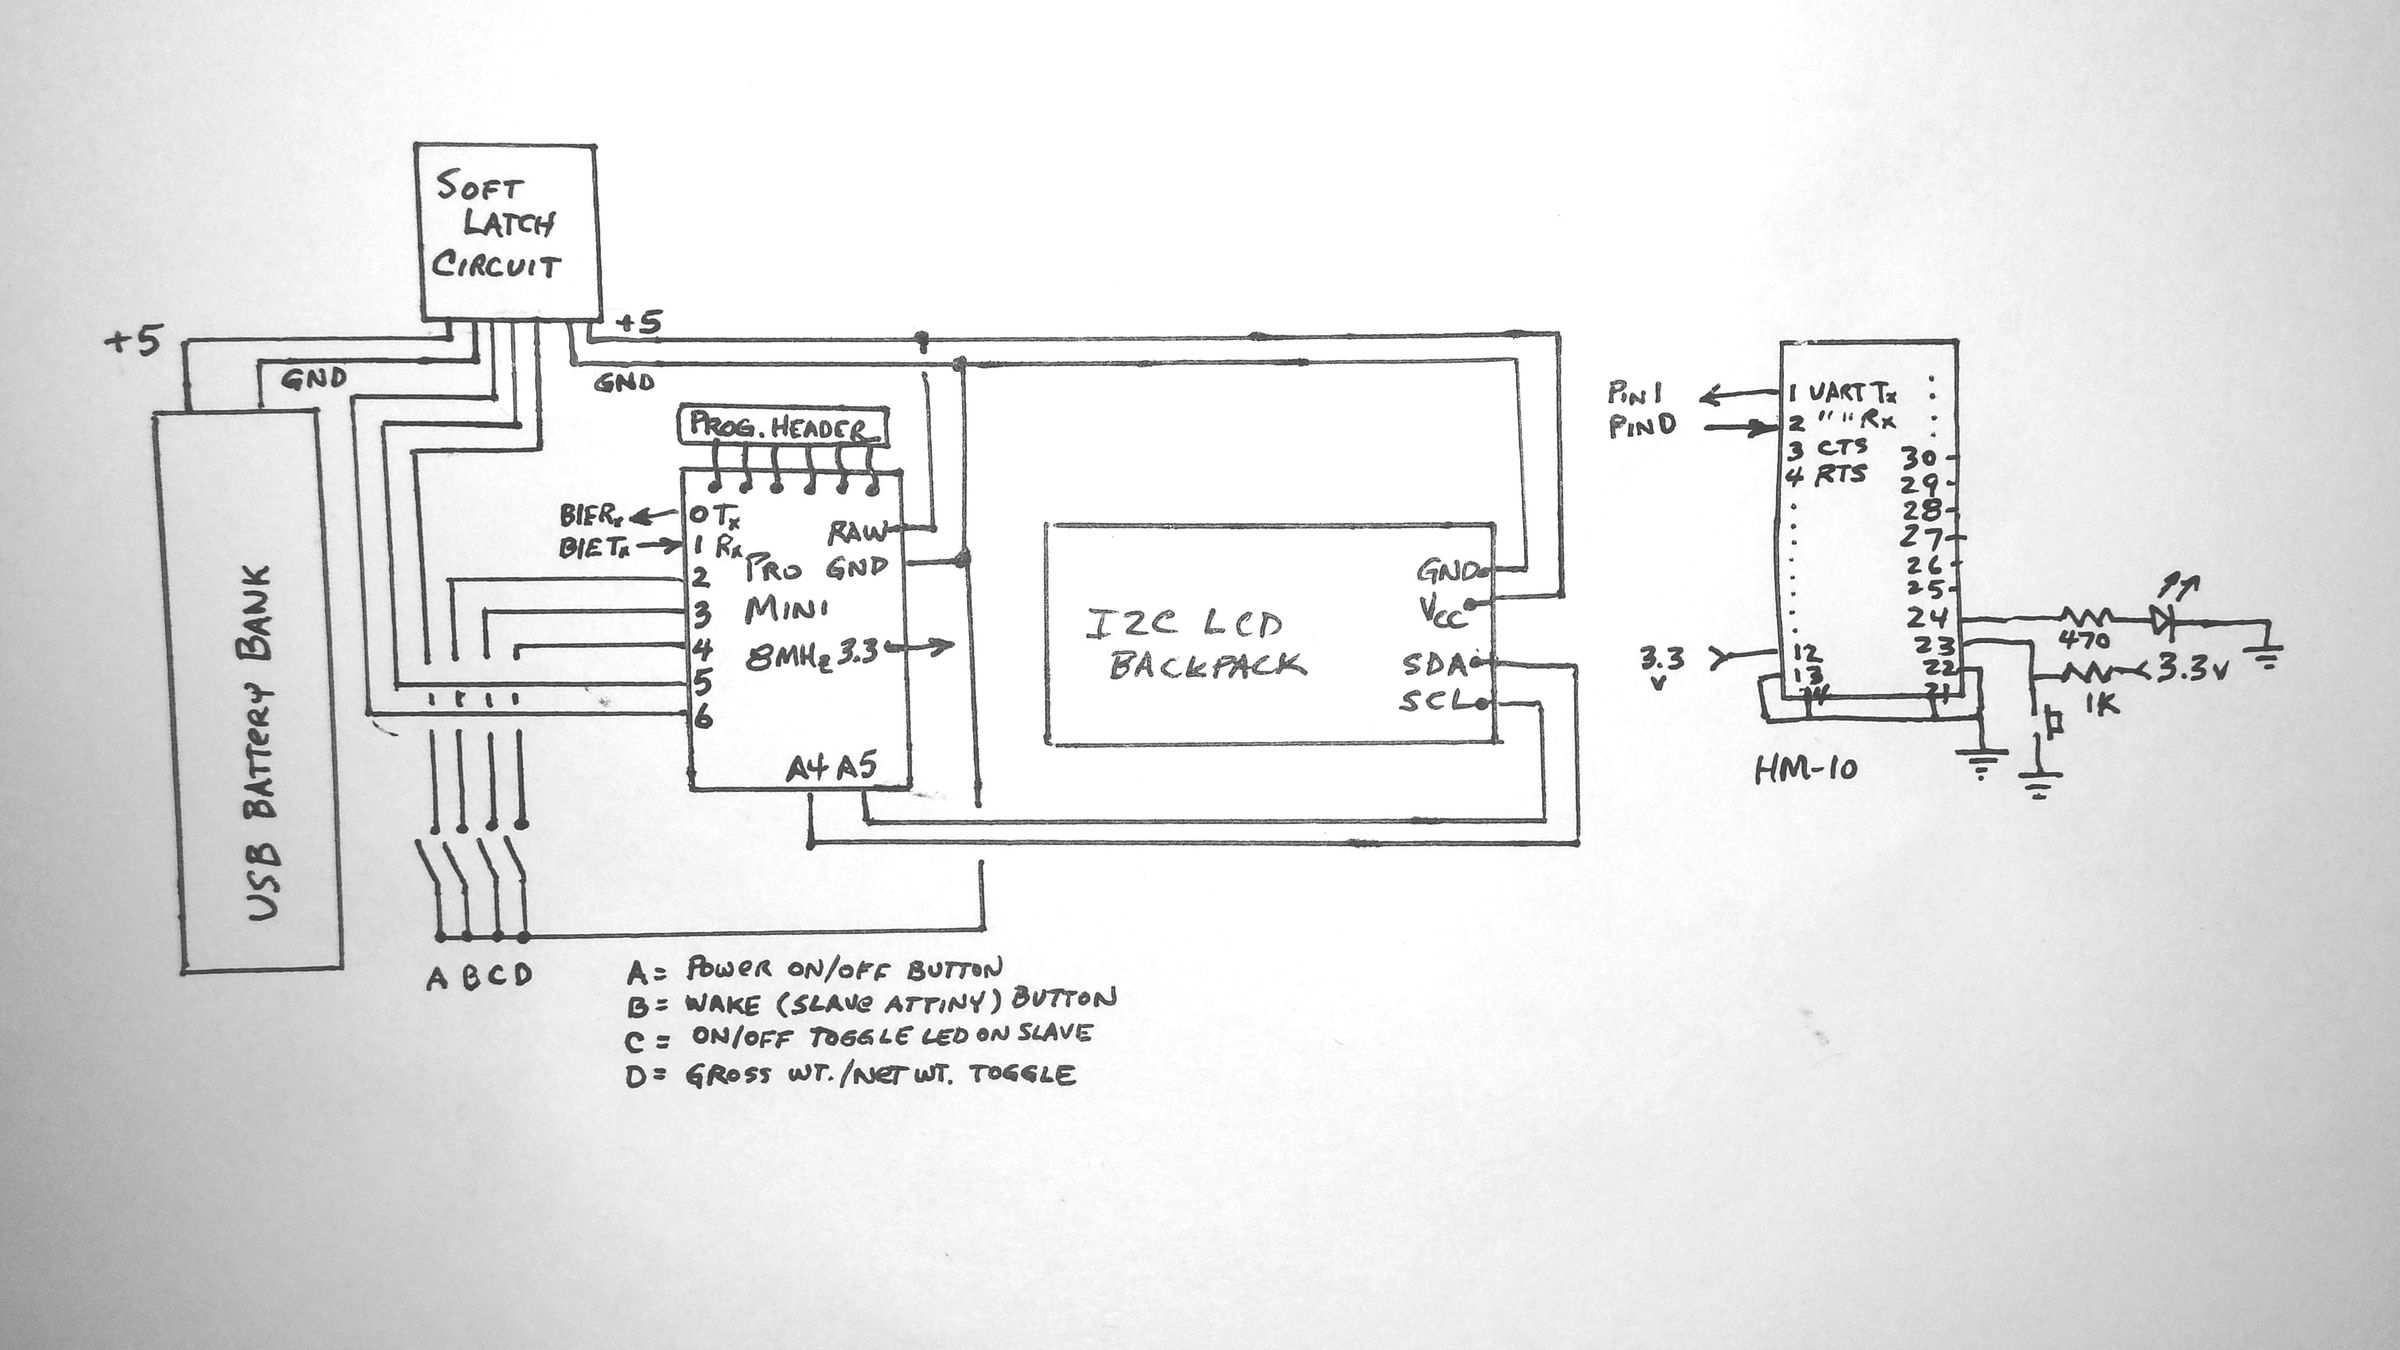 SOFT
LATCH
CIRCUIT
+5
+5
GND
GND
PROG. HEADER
BlERx
BlETx
0 Tx
1 Rx
RAW
PRO GND
2
3 MINI
4
8MHz 3.3
5
6
A4 A5
USB BATTERY BANK
I2C LCD
BACKPACK
GND
Vcc
SDA
SCL
PIN 1
PIN 0
1 UART Tx
2 " " Rx
3 CTS
4 RTS
30
29
28
27
26
25
24
23
22
21
12
13
14
3.3
v
470
3.3v
1K
HM-10
A B C D
A = POWER ON/OFF BUTTON
B = WAKE (SLAVE ATTINY) BUTTON
C = ON/OFF TOGGLE LED ON SLAVE
D = GROSS WT./NET WT. TOGGLE